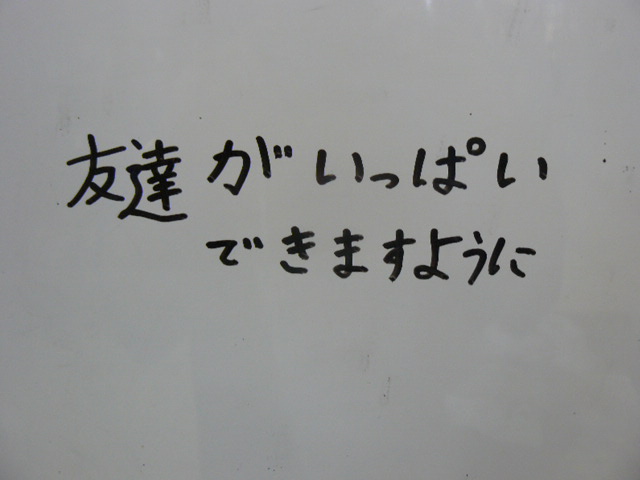 友達がいっぱい
できますように